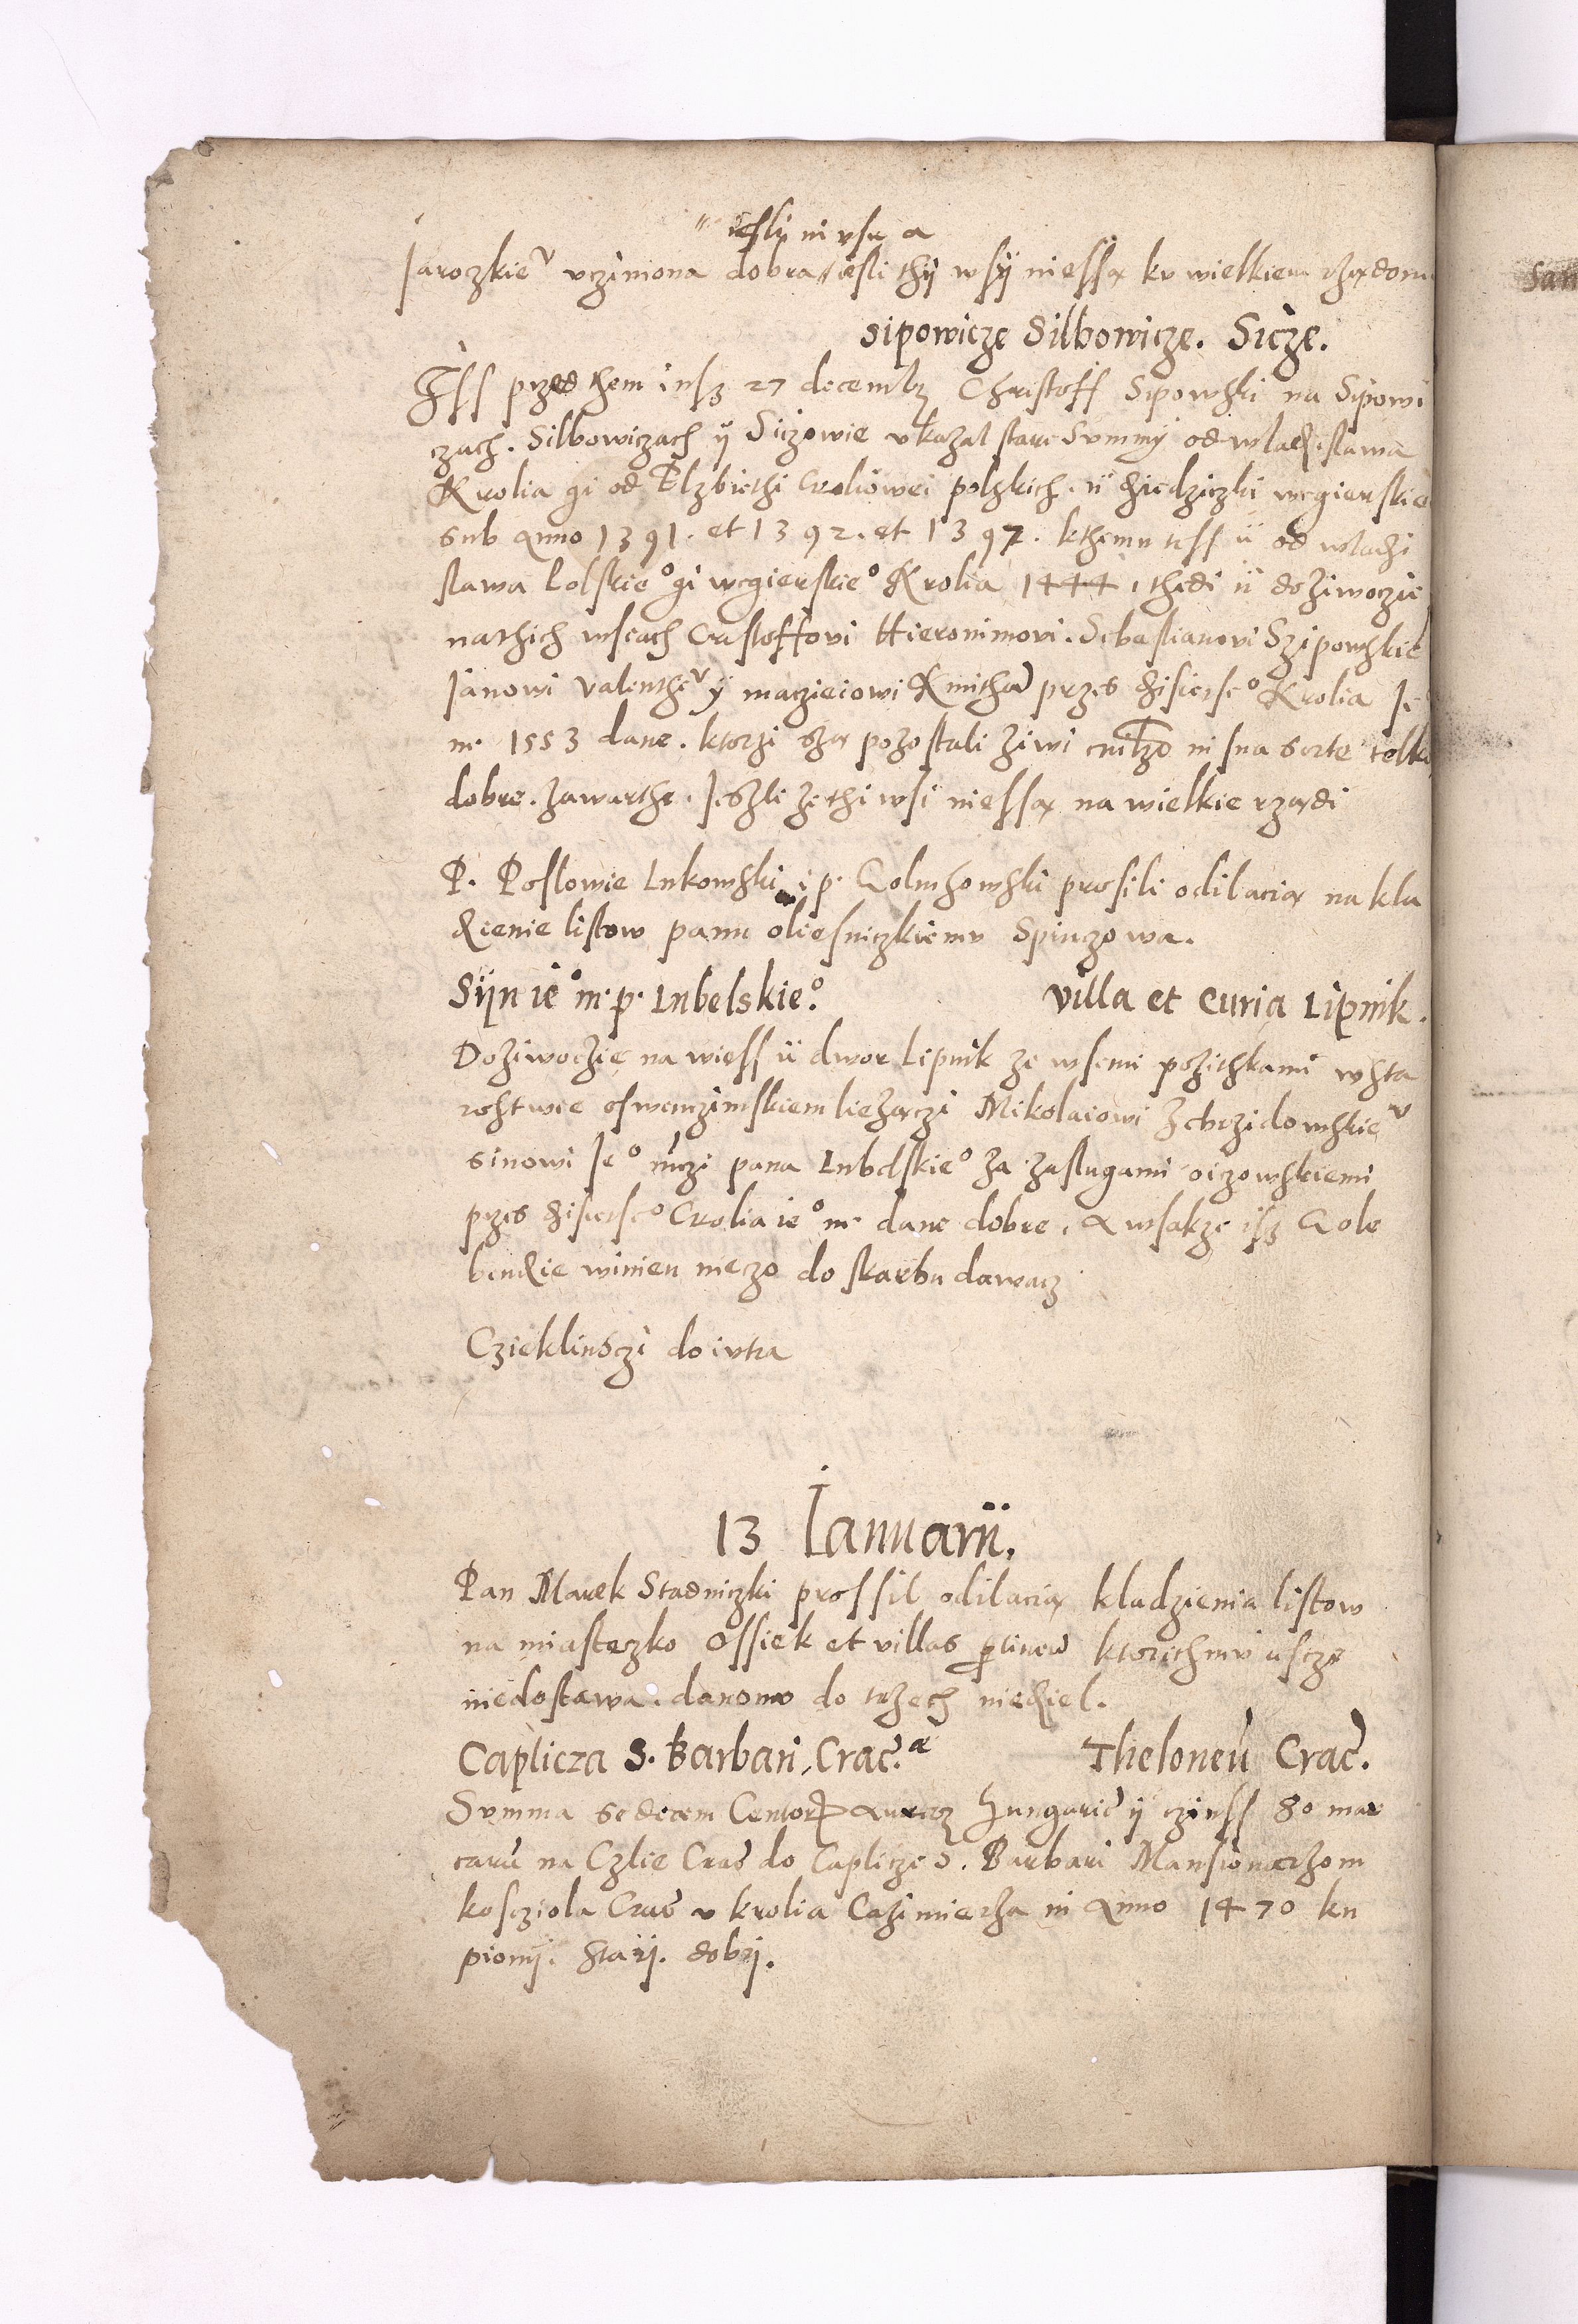 iesly in usu a
Jaroczkieu uczÿniona dobra iesli thÿ wsÿ niessą ku wielkiem rządom
Sipowicze Silbowicze. Sicze.
Iss przed them insz 27 decembr Christoff Sipowski na Sipowi
czach. Silbowiczach ÿ Siczowie ukazal stare Summÿ od wladislawa
Krolia gi od Elzbiethi Croliowei polskich. ÿ dziedziczki wegierskie
sub Anno 1391. et 1392. et 1397. kthemu tess ÿ od wladi
slawa Polskieo gi wegierskieo Krolia 1444, thedi ÿ doziwoczie
nathich wseach Cristoffovi Hieronimovi. Sebastianovi Szipowskie
Janowi Valenthemu ÿ maczieiowi Kmithom przes disieiseo Krolia Je
m. 1553 dane. ktorzi szą pozostali ziwi in sua sorte telko
dobre. zawarthe. Jeszli ze thi wsi niessą na wielkie rządi
P. Poslowie Lukowski i p. Goluchowski prosili odilacią na kla
dzenie listow panu oliesniczkiemu Spinczowa.
Sÿn ieo m. p. Lubelskieo. Villa et Curia Lipnik.
Doziwoczie na wiess ÿ dwor Lipnik ze wsemi pozithkami wsta
rostwie osweczimskiem liezączi Mikolaiowi Zebrzidowskieu
sinowi Jeo mczi pana Lubelskieo za zaslugami oiczowskiemi
przes disieiseo Crolia ieo m. dane dobre. A wsakze isz Gole
bendzie winien nieczo do skarbu dawacz
Czieklinsczi do iutra
13 Januarii.
Pan Marek Stadniczki prossil odilacią kladzienia listow
na miasteczko Ossiek et villas pertinen ktorichmu iescze
niedostawa. danomu do trzech niedziel.
Caplicza S. Barbari, Crac.a Theloneu Crac.
Summa sedecem Centor Aureor Hungaric ÿ czinss 80 mar
caru na Czlie Crac do Caplicze S. Barbari Mansionarzom
kosciola Crac u krolia Cazimierza in Anno 1470 ku
pionÿ. Starÿ. dobrÿ.